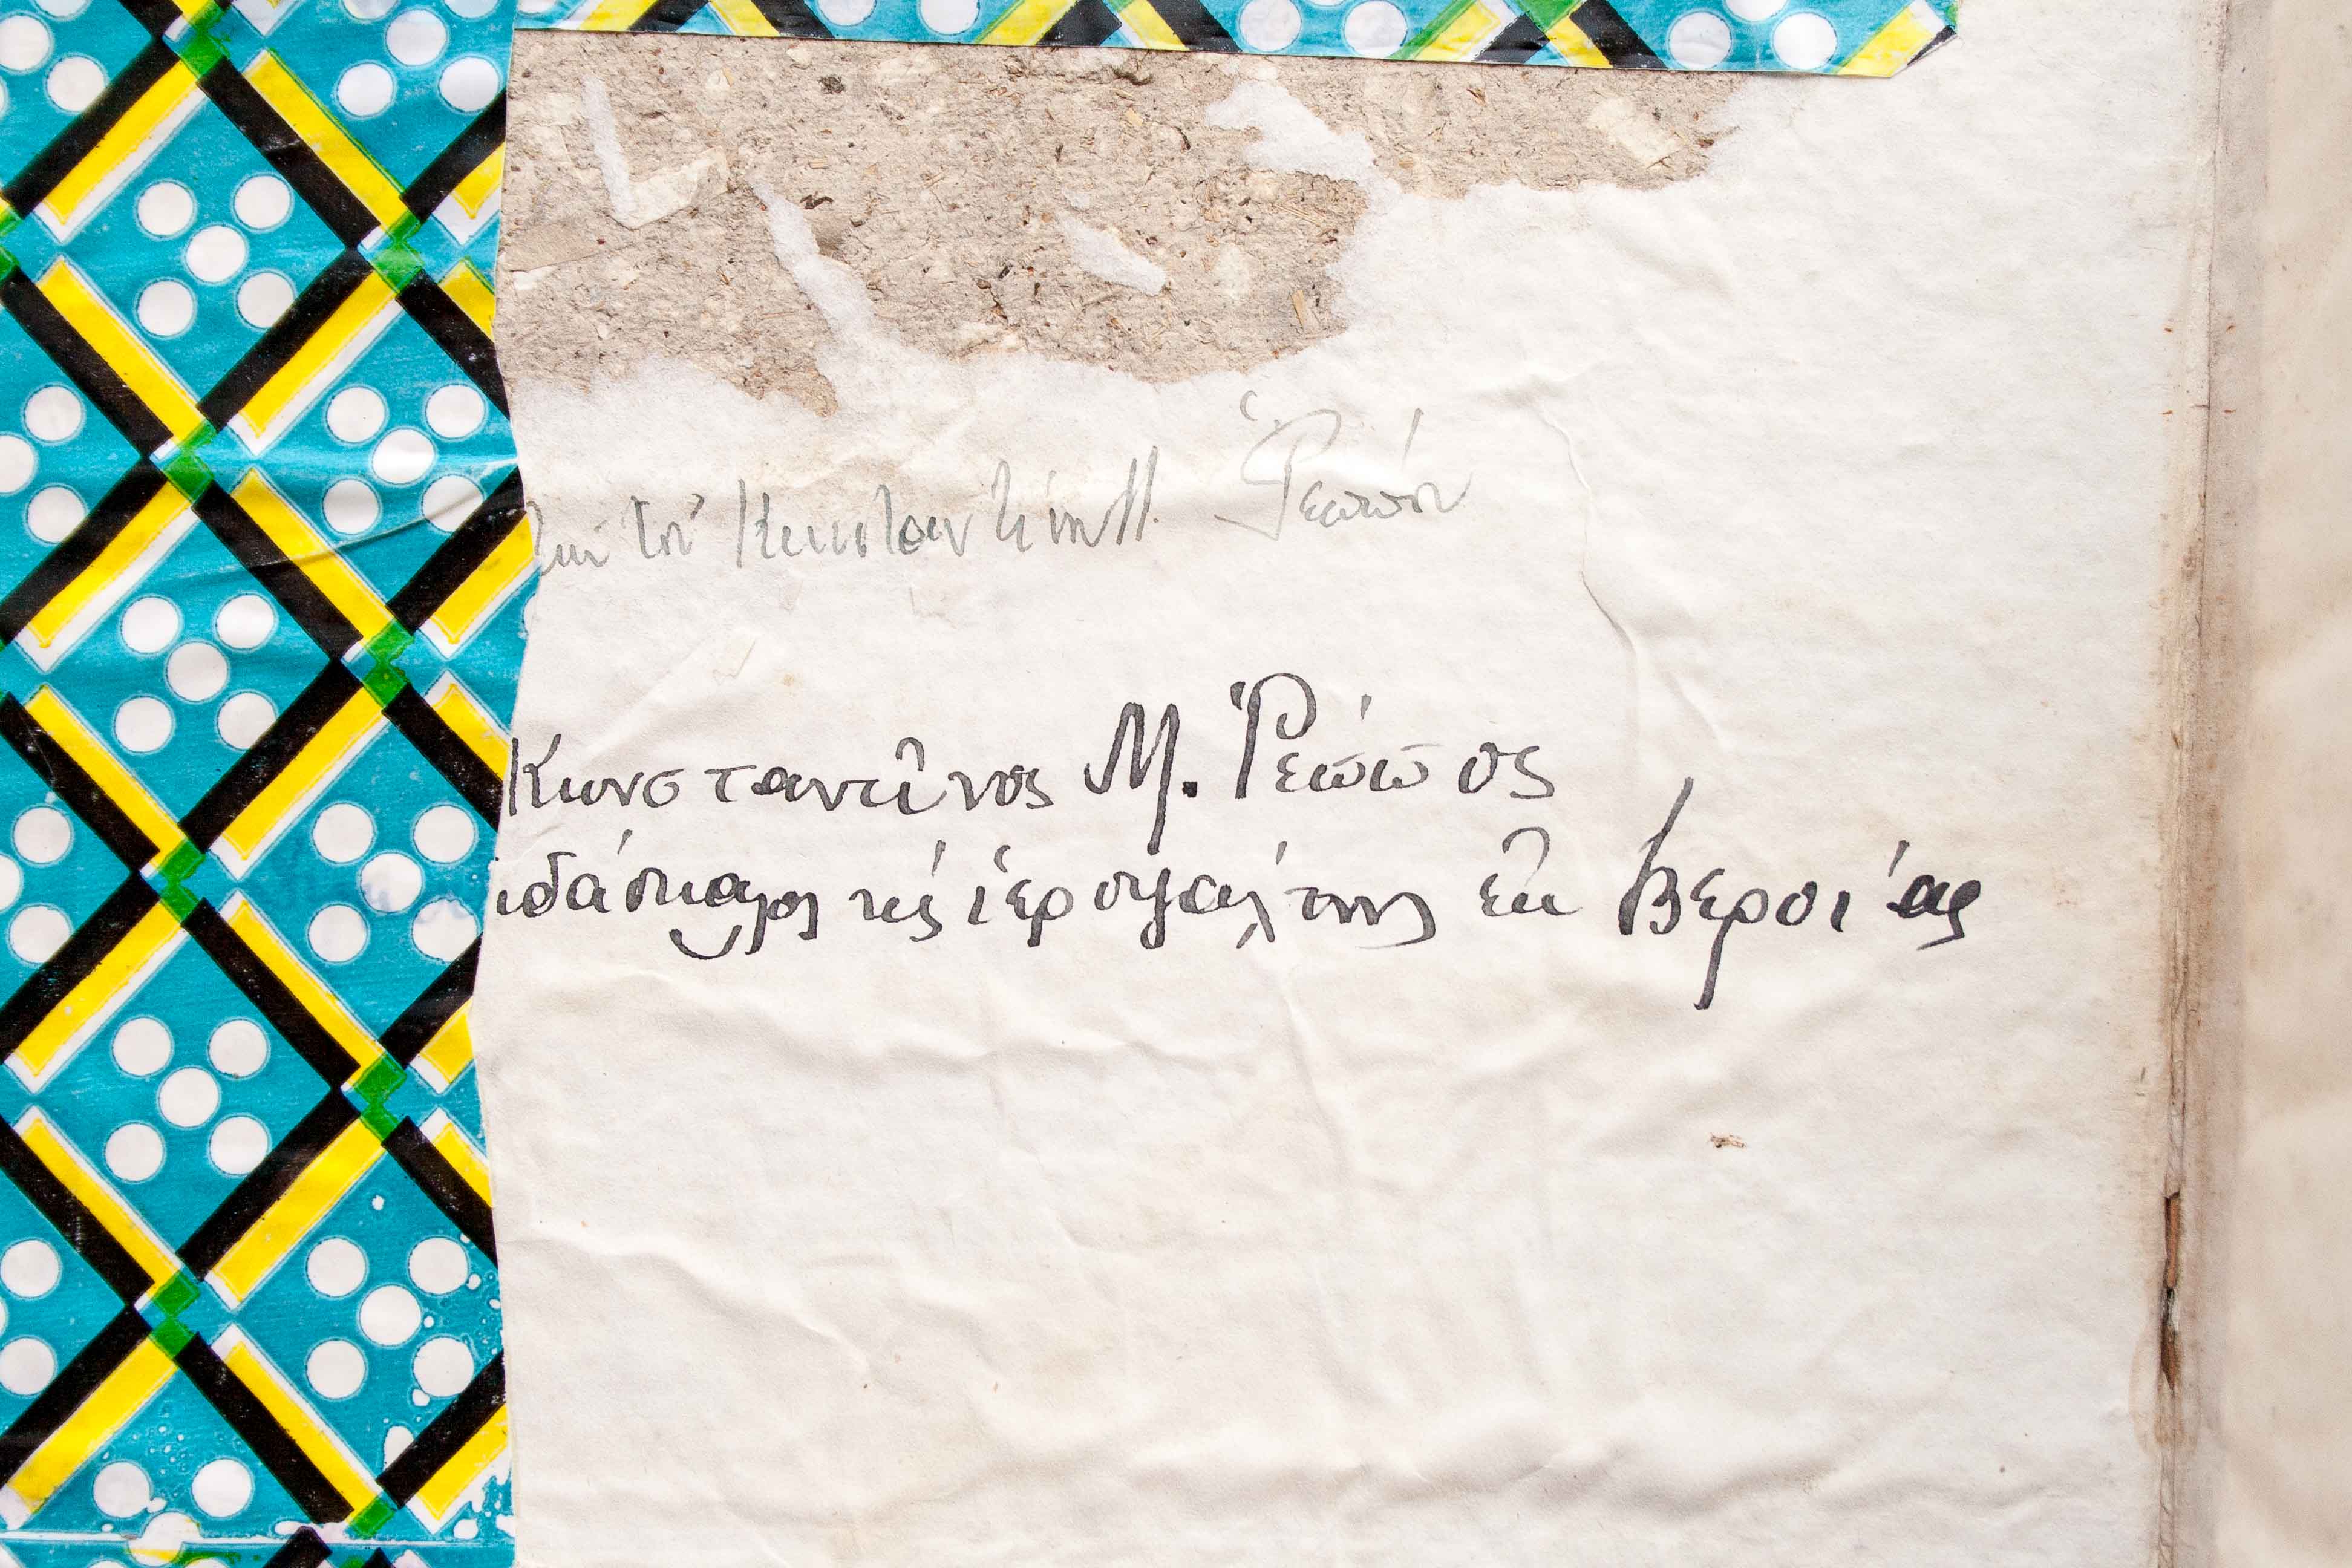 τοῦ Κωνσταντίνου Μ. Ῥεππου
Κωνσταντῖνος Μ. Ῥεππος
ιδάσκαλος κὶ ἱεροψάλτης ἐκ Βεροίας